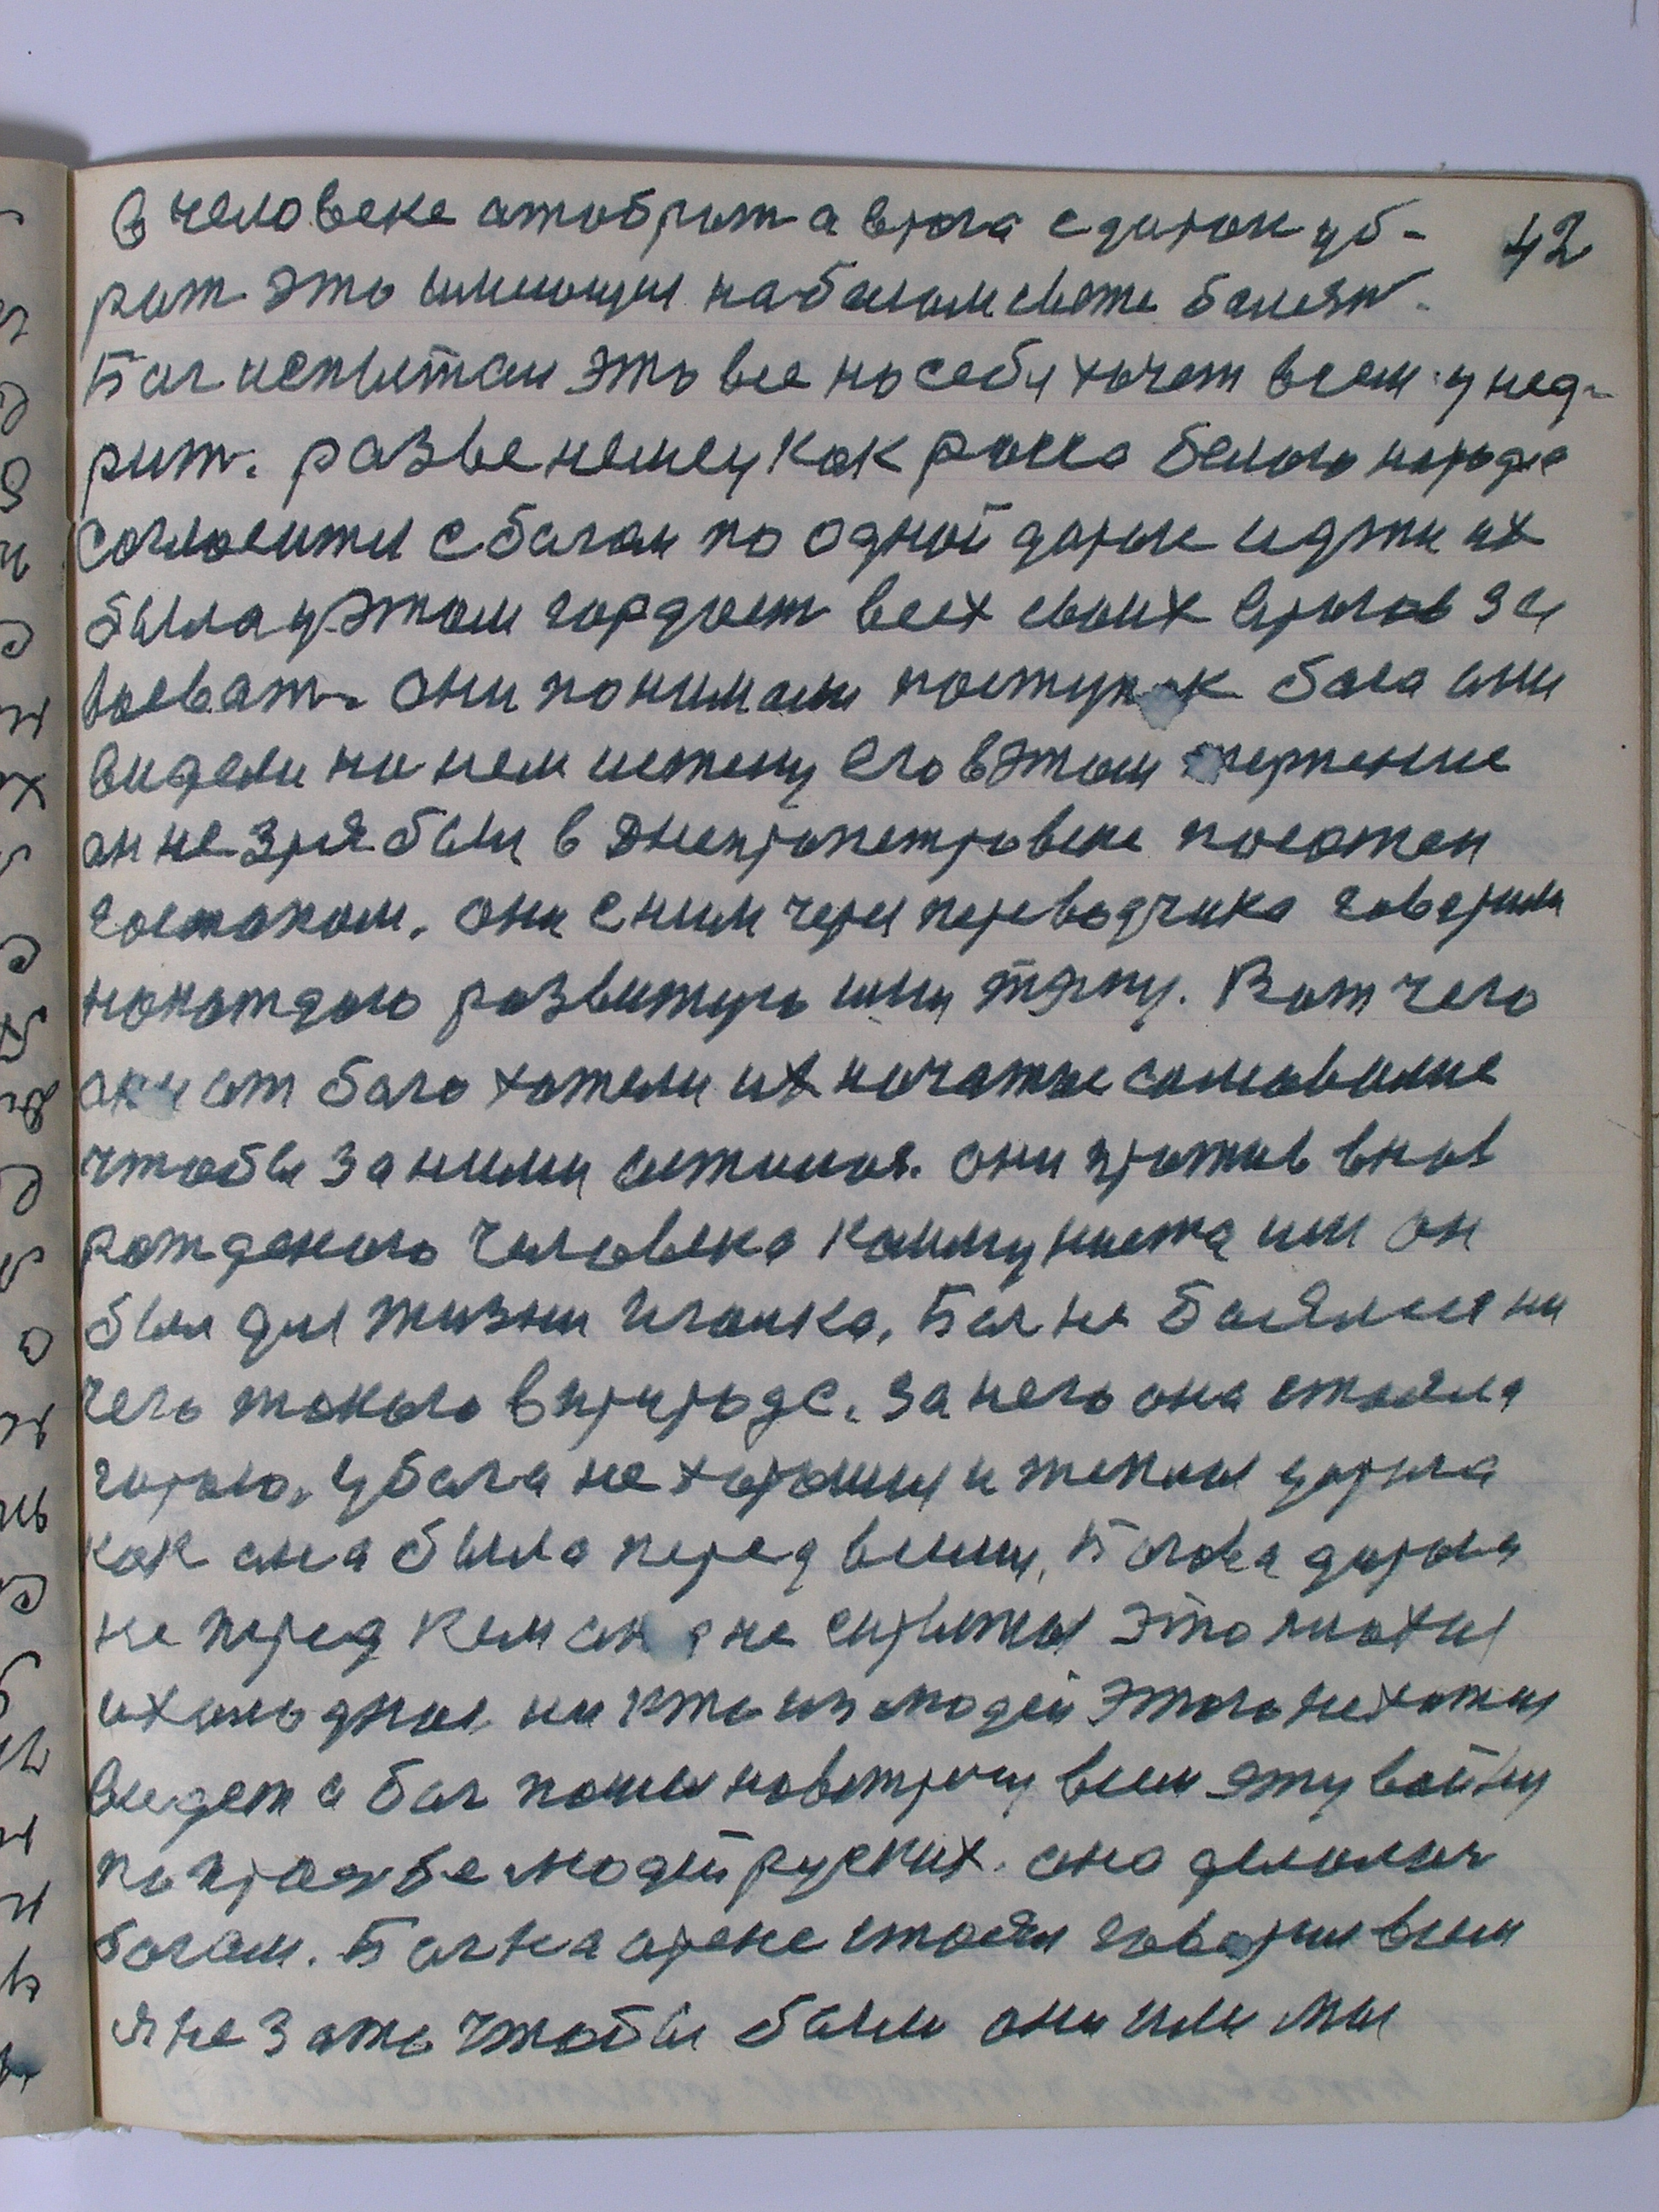 в человеке атобрат а врага с дарок уб- 42
рат это имеющия на белом свете балезн.
Бог испытал это все на себя хочет всем унед-
рит. разве немец как раса белого народа
согласится с богам по одной дароге идти их
была у этом гордаст всех своих врагов за
воеват. они понимали поступок бога они
видели на нем истену его в этом терпение
он не зря был в Днепропетровске посажен
гестапом. они с ним через переводчика говарили
накаждого развитую ими тэму. Вот чего
они от бога хотели их начатае самовалие
чтобы за ними астался. они против внов
рожденого человека коммуниста им он
был для жизни иголка. Бог не баялся ни
чего такого в природе. за него она стояла
горою. у бога не хорошия и тепла дарога
как она была перед всими. Богова дарога
не перед кем она не скрытая это плохая
и холодная ни кто из людей этого не хотил
видет а бог пошел навстречу всем эту войну
по прозбе людей руских. она делалас
богам. Бог на арене стоял говорил всем
я не за то чтобы были они или мы